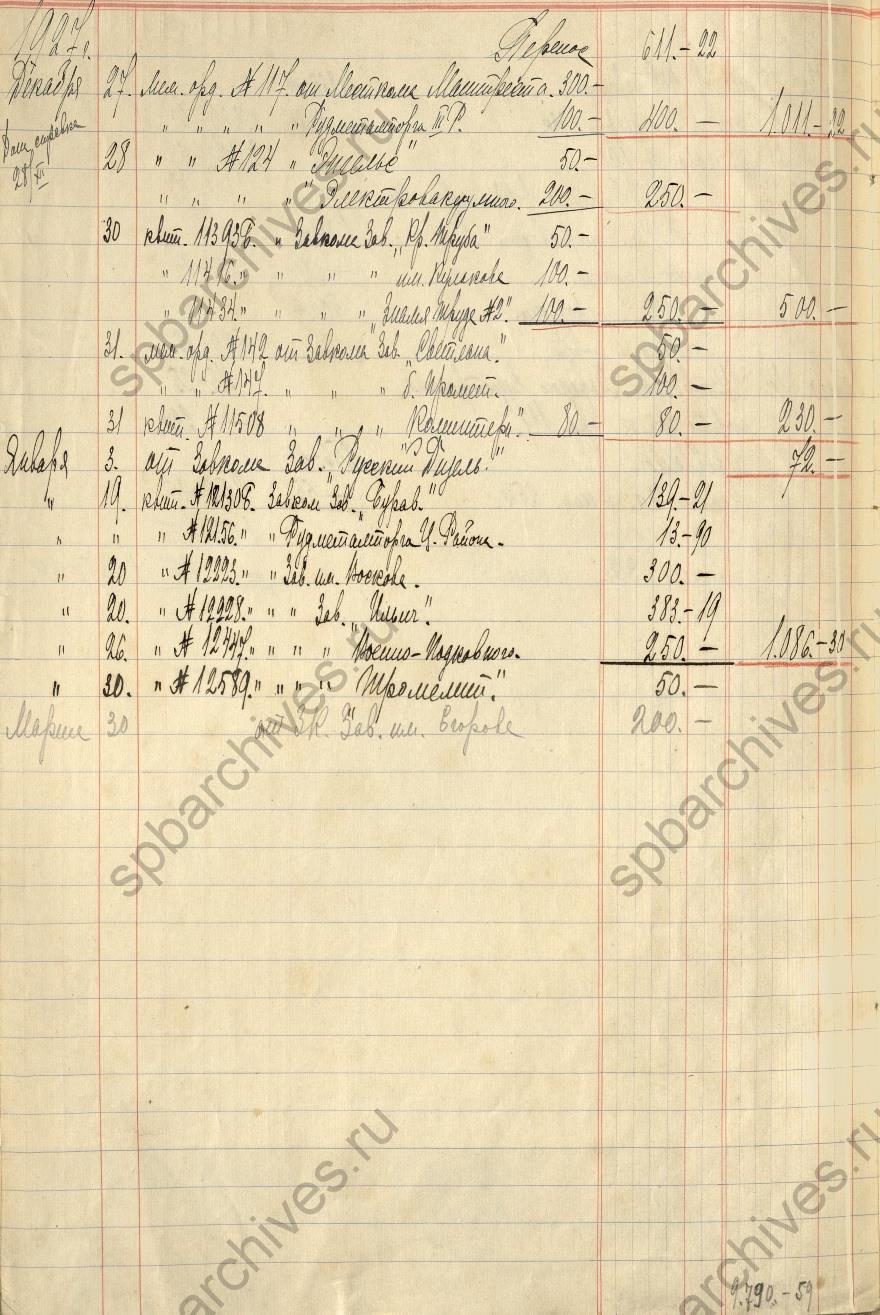 1927г.
Перенос 611.-22
Декабря 27. мем. орд. № 117. от Месткома Маштреста. 300.-
" " " " " Рудметалторга III Р. 100.- 400. - 1.011.-22
Дат. справка 28/XII
28 " " № 124 " "Энгельс" 50.-
" " " " " Электровакуумного. 200.- 250. -
30 квит. 113938. " Завкома Зав. "Кр. Труба" 50.-
" 11416." " " " им. Кулакова 100.-
" 11434." " " " "Знамя Труда №2". 100.- 250. - 500.-
31. мем. орд. № 142 от Завкома Зав. "Светлана." 50.-
" " № 147. " " " б. Промет. 100.-
31 квит. № 11508 " " " "Коминтерн". 80.- 80.- 230.-
Января 3. от Завкома Зав. "Русский Дизель." 72.-
" 19. квит. № 121308. Завком Зав. "Бурав." 139-21
" " " № 12156. " Рудметалторга Ц. Района. 13.-90
" 20 " № 12223. " Зав. им. Воскова. 300. -
" 20. " № 12228. " " Зав. "Ильич". 383.-19
" 26. " № 12447. " " " Военно-Подковного. 250. - 1.086.-30
" 30. " № 12589. " " " "Промет." 50.-
Марта 30 от З.К. Зав. им. Егорова 200. -
9.790.-59
spbarchives.ru
spbarchives.ru
spbarchives.ru
spbarchives.ru
spbarchives.ru
spbarchives.ru